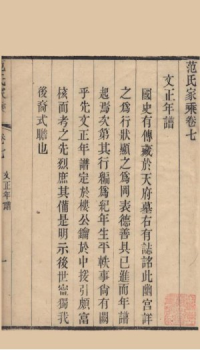 范氏家乘卷七
文正年譜
國史有傳藏於天府墓右有誌銘此幽宮詳
之為行狀顯之為岡表德善具已進而年譜
起焉次第其行編為紀年生平軼事尚有闕
乎先文正年譜定於樓公鑰於中援引頗富
核而考之先烈庶其備是明示後世寧獨我
後裔式瞻也
文正年譜